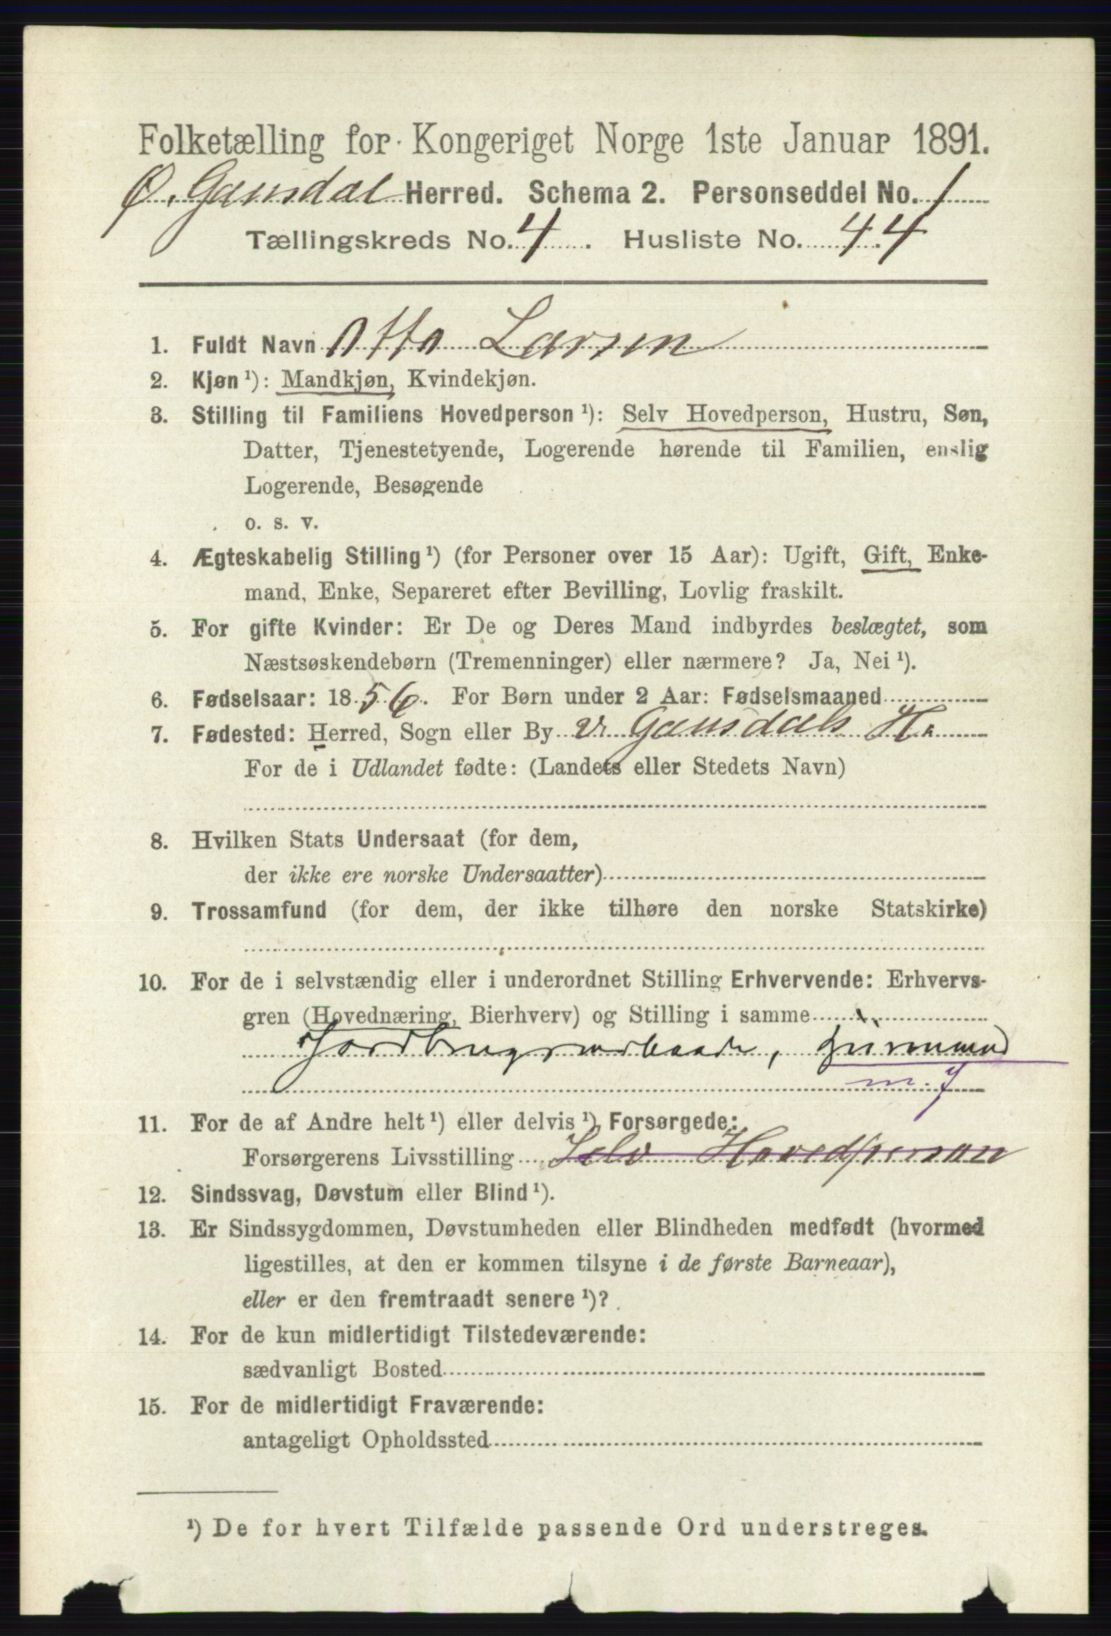 Folketælling for Kongeriget Norge 1ste Januar 1891.
Ø. Gausdal Herred. Schema 2. Personseddel No. 1
Tællingskreds No. 4. Husliste No. 44
1. Fuldt Navn Otto Larsen
2. Kjøn ¹): Mandkjøn, Kvindekjøn.
3. Stilling til Familiens Hovedperson ¹): Selv Hovedperson, Hustru, Søn,
Datter, Tjenestetyende, Logerende hørende til Familien, enslig
Logerende, Besøgende
o. s. v.
4. Ægteskabelig Stilling ¹) (for Personer over 15 Aar): Ugift, Gift, Enke-
mand, Enke, Separeret efter Bevilling, Lovlig fraskilt.
5. For gifte Kvinder: Er De og Deres Mand indbyrdes beslægtet, som
Næstsøskendebørn (Tremenninger) eller nærmere? Ja, Nei ¹).
6. Fødselsaar: 1856. For Børn under 2 Aar: Fødselsmaaned
7. Fødested: Herred, Sogn eller By V. Gausdals H.
For de i Udlandet fødte: (Landets eller Stedets Navn)
8. Hvilken Stats Undersaat (for dem,
der ikke ere norske Undersaatter)
9. Trossamfund (for dem, der ikke tilhøre den norske Statskirke)
10. For de i selvstændig eller i underordnet Stilling Erhvervende: Erhvervs-
gren (Hovednæring, Bierhverv) og Stilling i samme
Jordbrugsarbeide, Husmand
m. J
11. For de af Andre helt ¹) eller delvis ¹) Forsørgede:
Forsørgerens Livsstilling Selv Hovedperson
12. Sindssvag, Døvstum eller Blind ¹).
13. Er Sindssygdommen, Døvstumheden eller Blindheden medfødt (hvormed
ligestilles, at den er kommen tilsyne i de første Barneaar),
eller er den fremtraadt senere ¹)?
14. For de kun midlertidigt Tilstedeværende:
sædvanligt Bosted
15. For de midlertidigt Fraværende:
antageligt Opholdssted
¹) De for hvert Tilfælde passende Ord understreges.